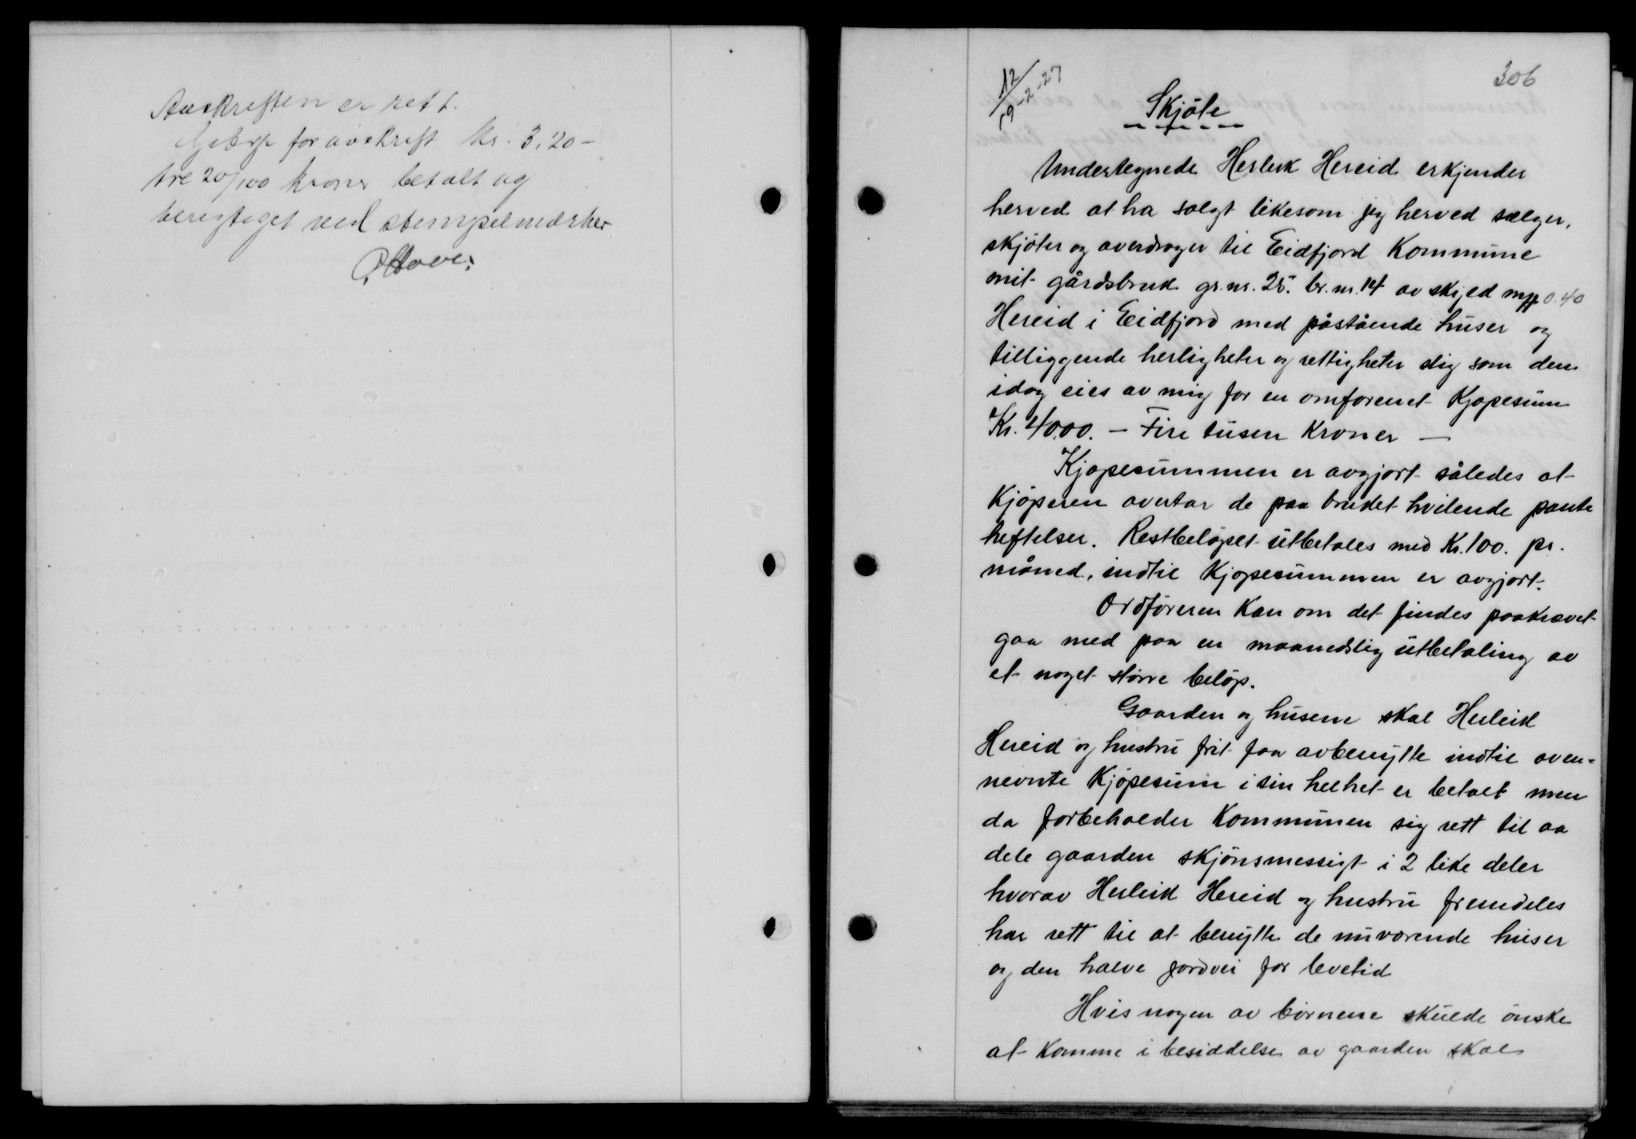 Avskriften er rett.
Gebyr for avskrift kr. 3,20 –
tre 20/100 kroner betalt og
berigtiget ved stempelmærker
Hove.
306
12/19-2-27
Skjöte
Undertegnede Herleik Hereid erkjender
herved at ha solgt likesom jeg herved sælger,
skjöter og overdrager til Eidfjord Kommune
mit gårdsbruk gr.nr. 25. br.nr. 14 av skyld 0.40
Hereid i Eidfjord med påstående huser og
tilliggende herligheter og rettigheter slig som den
idag eies av mig for en omforenet Kjøpesum
Kr. 4000. – Fire tusen Kroner –
Kjøpesummen er avgjort således at
Kjöperen overtar de paa bruket hvilende pante
heftelser. Restbeløpet utbetales med Kr. 100. pr.
måned, indtil Kjøpesummen er avgjort.
Ordføreren Kan om det findes paakrævet
gaa med paa en maanedslig utbetaling av
et noget större beløp.
Gaarden og husene skal Herleik
Hereid og hustru frit faa avbenytte indtil oven=
nevnte Kjøpesum i sin helhet er betalt men
da forbeholder Kommunen sig rett til aa
dele gaarden skjönsmessigt i 2 like deler
hvorav Herleik Hereid og hustru fremdeles
har rett til at benytte de nuværende huser
og den halve jordvei for levetid
Hvis nogen av börnene skulde önske
at Komme i besiddelse av gaarden skal